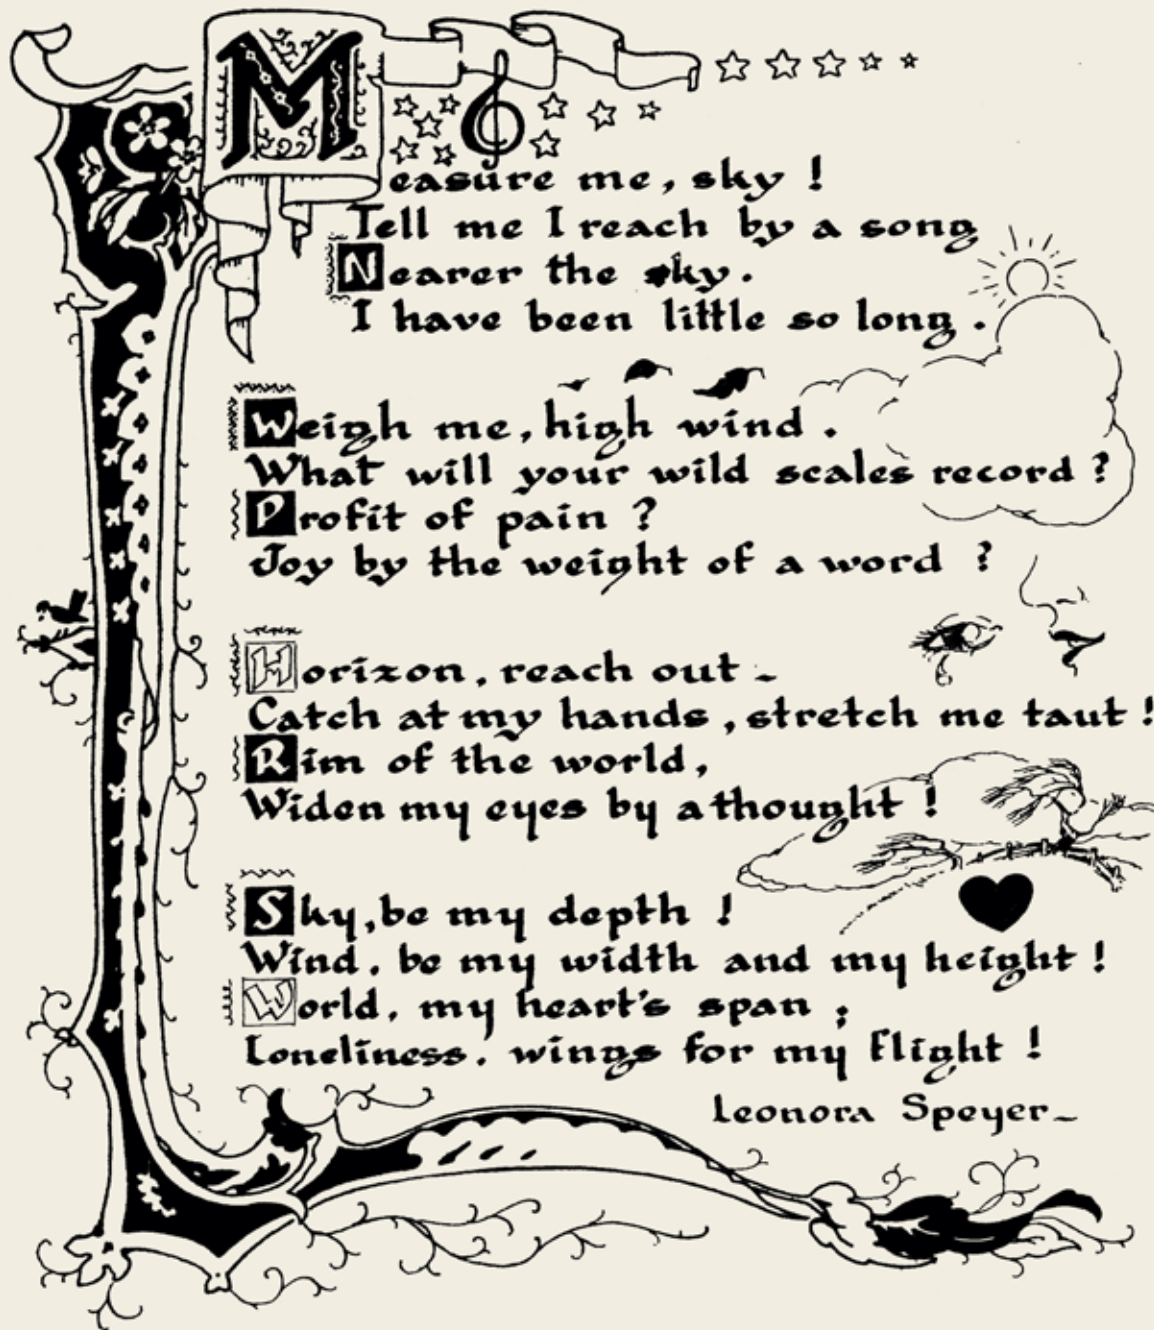 Measure me, sky !
Tell me I reach by a song
Nearer the sky.
I have been little so long.
Weigh me, high wind.
What will your wild scales record ?
Profit of pain ?
Joy by the weight of a word ?
Horizon, reach out -
Catch at my hands, stretch me taut !
Rim of the world,
Widen my eyes by a thought !
Sky, be my depth !
Wind, be my width and my height !
World, my heart's span ;
Loneliness, wings for my flight !
Leonora Speyer-